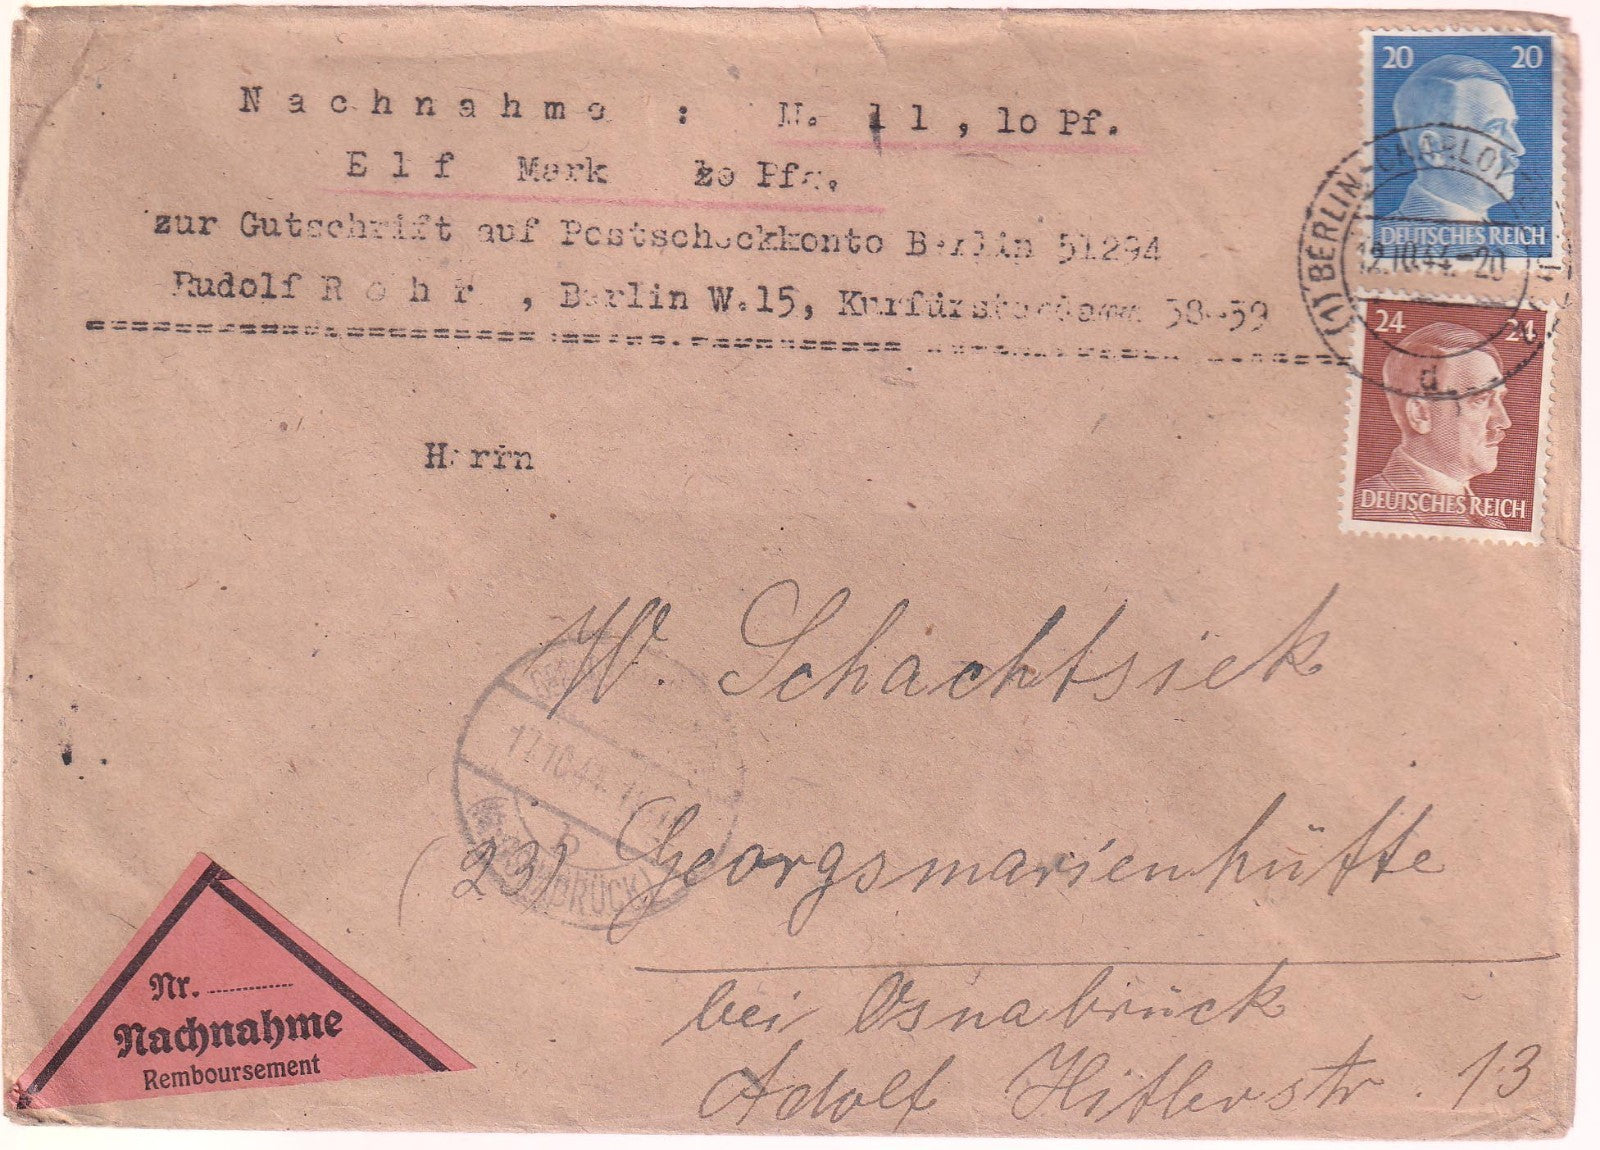 Nachnahme : M. 11,10 Pf.
Elf Mark 10 Pfg.
zur Gutschrift auf Postscheckkonto Berlin 51294
Rudolf Rohr, Berlin W.15, Kurfürstendamm 38-39
20 20
DEUTSCHES REICH
(1) BERLIN-CHARLOT
12.10.44.-20
d
24 24
DEUTSCHES REICH
Herrn
W. Schachtsiek
17.10.44.
b
BRÜCK)
(23) Georgsmarienhütte
bei Osnabrück
Adolf Hitlerstr. 13
Nr.
Nachnahme
Remboursement